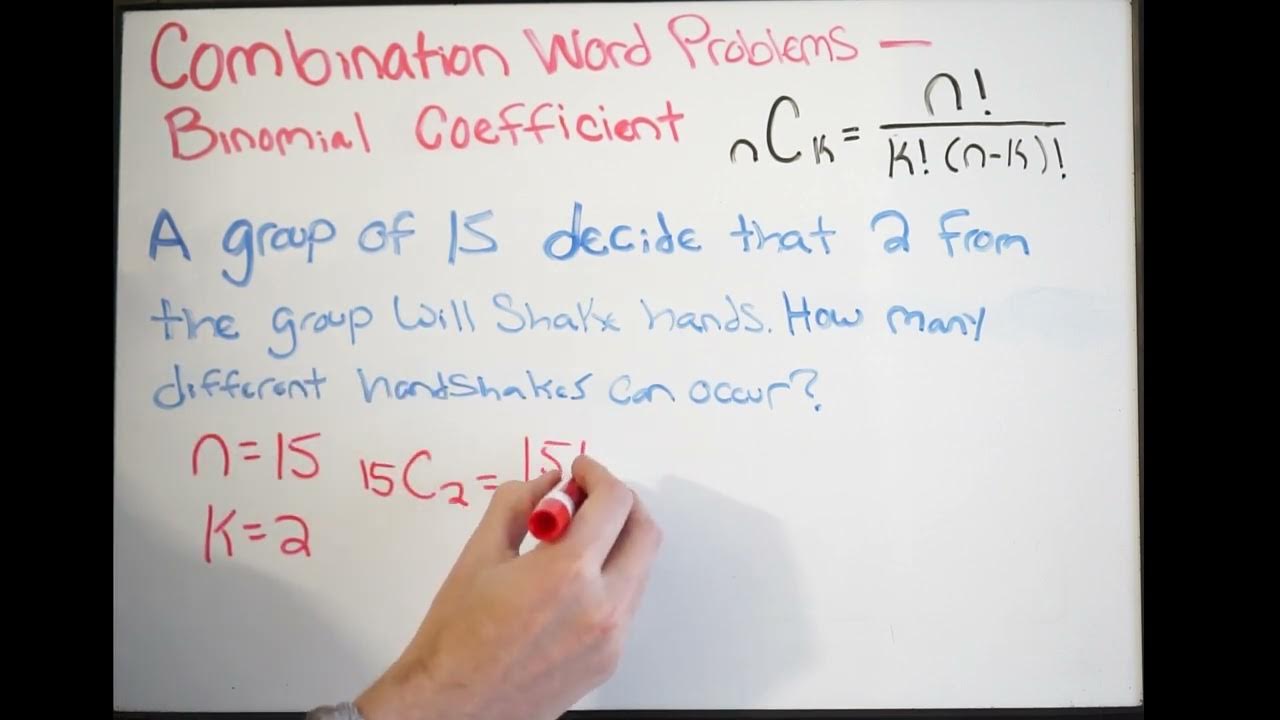 Combination Word Problems —
Binomial Coefficient
nCk = n! / k!(n-k)!
A group of 15 decide that 2 from
the group will shake hands. How many
different handshakes can occur?
n=15 15C2 = 15!
k=2